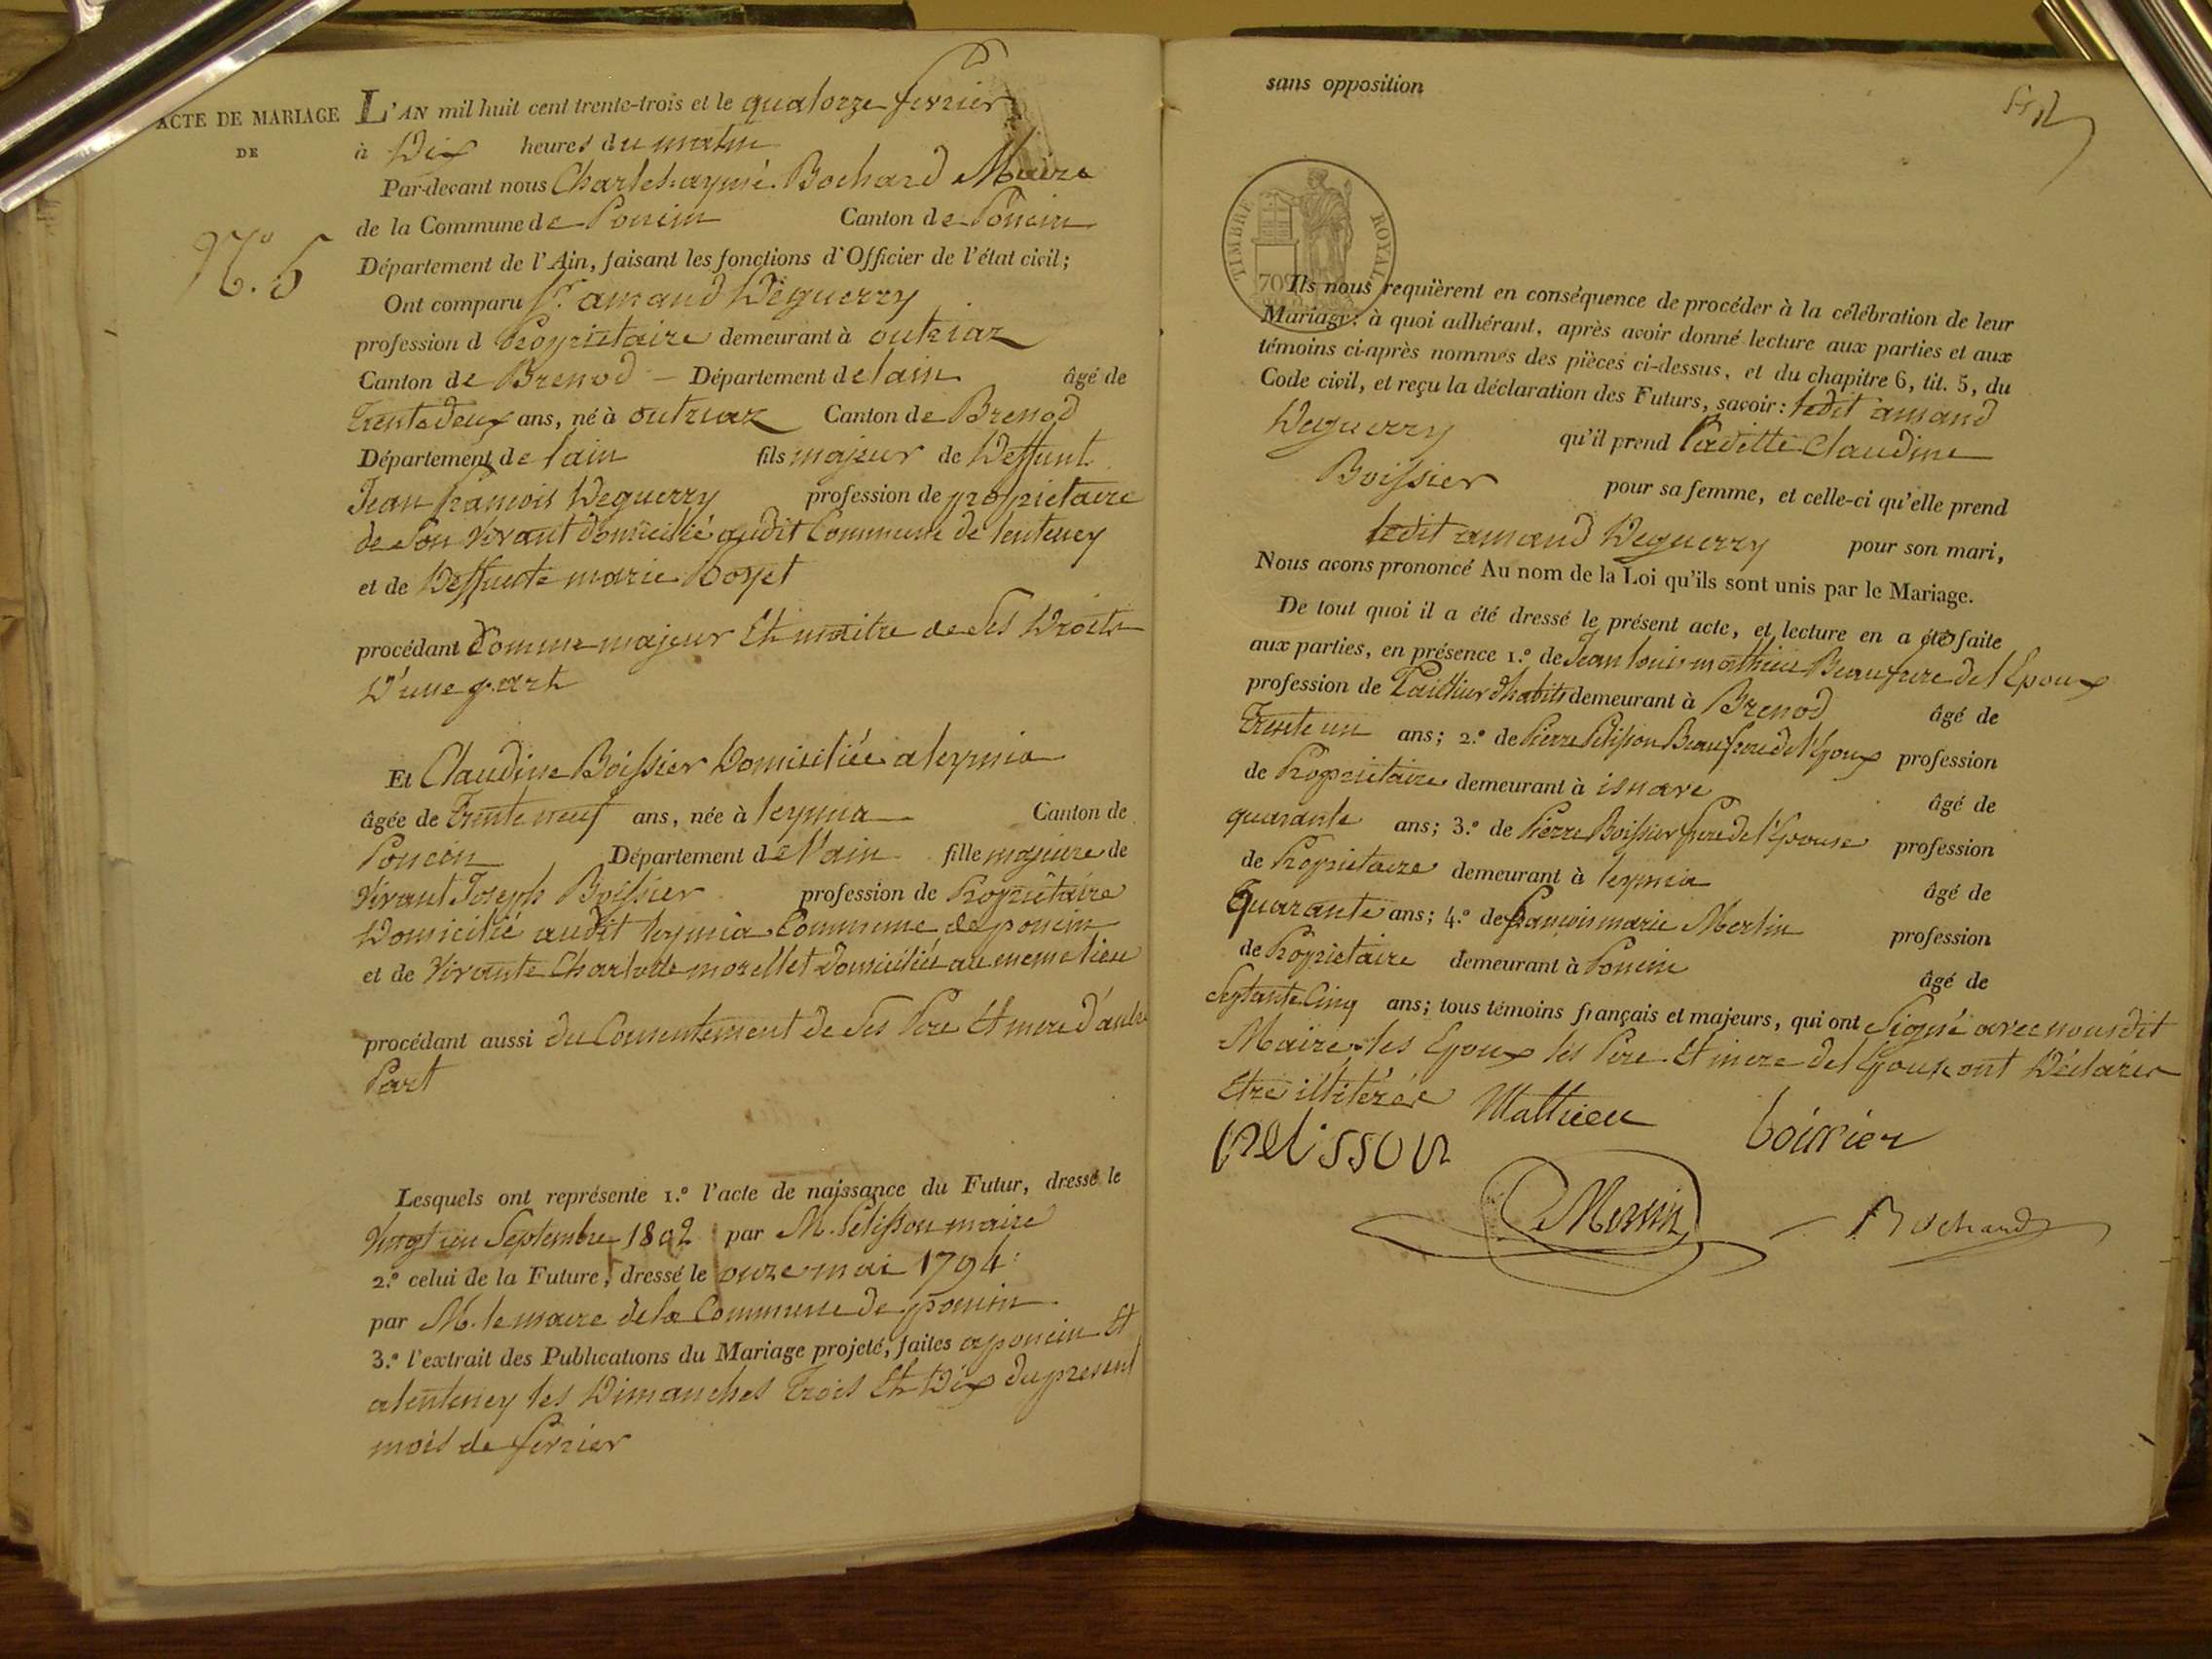 ACTE DE MARIAGE
DE
N.º 5
L'AN mil huit cent trente-trois et le quatorze fevrier
à Dix heures du matin
Par-devant nous Charles aymé Bochard Maire
de la Commune de Poncin Canton de Poncin
Département de l'Ain, faisant les fonctions d'Officier de l'état civil;
Ont comparu Sr. amand Deguerry
profession d Propriétaire demeurant à outriaz
Canton de Brenod Département de lain âgé de
Trente deux ans, né à outriaz Canton de Brenod
Département de lain fils majeur de Deffunt
Jean françois Deguerry profession de propriétaire
de son vivant domicilié audit Commune de lenteney
et de Deffunte marie
procédant Comme majeur Et maitre de ses Droits
D'une part
Et Claudine Boissier Domiciliée a leymia
âgée de Trente neuf ans, née à leymia Canton de
Poncin Département de l'ain fille majeure de
vivant Joseph Boissier profession de Propriétaire
Domicilié audit leymia Commune de poncin
et de vivante Charlotte morellet domiciliée au meme lieu
procédant aussi du Consentement de ses Pere Et mere d'autre
Part
Lesquels ont représenté 1.º l'acte de naissance du Futur, dressé le
vingt un Septembre 1802 par M. Pelisson maire
2.º celui de la Future, dressé le onze mai 1794
par M. le maire de la Commune de poncin
3.º l'extrait des Publications du Mariage projeté, faites a poncin Et
a lenteney les Dimanches Trois Et Dix du present
mois de fevrier
sans opposition
TIMBRE ROYAL
Ils nous requièrent en conséquence de procéder à la célébration de leur
Mariage: à quoi adhérant, après avoir donné lecture aux parties et aux
témoins ci-après nommés des pièces ci-dessus, et du chapitre 6, tit. 5, du
Code civil, et reçu la déclaration des Futurs, savoir: ledit amand
Deguerry qu'il prend laditte Claudine
Boissier pour sa femme, et celle-ci qu'elle prend
ledit amand Deguerry pour son mari,
Nous avons prononcé Au nom de la Loi qu'ils sont unis par le Mariage.
De tout quoi il a été dressé le présent acte, et lecture en a été faite
aux parties, en présence 1.º de Jean louis mathieu Beaufrere de l'Epoux
profession de Tailleur d'habits demeurant à Brenod âgé de
Trente un ans; 2.º de Pierre Pelisson Beaufrere de l'Epoux profession
de Propriétaire demeurant à isnave âgé de
quarante ans; 3.º de Pierre Boissier frere de l'Epouse profession
de Propriétaire demeurant à leymia âgé de
Quarante ans; 4.º de françois marie Merlin profession
de Propriétaire demeurant à Poncin âgé de
Septante Cinq ans; tous témoins français et majeurs, qui ont Signé avec nous dit
Maire les Epoux les Pere Et mere de l'Epouse ont Déclarés
Etre illitérés
Mathieu
boissier
pelisson
Merlin
Bochard